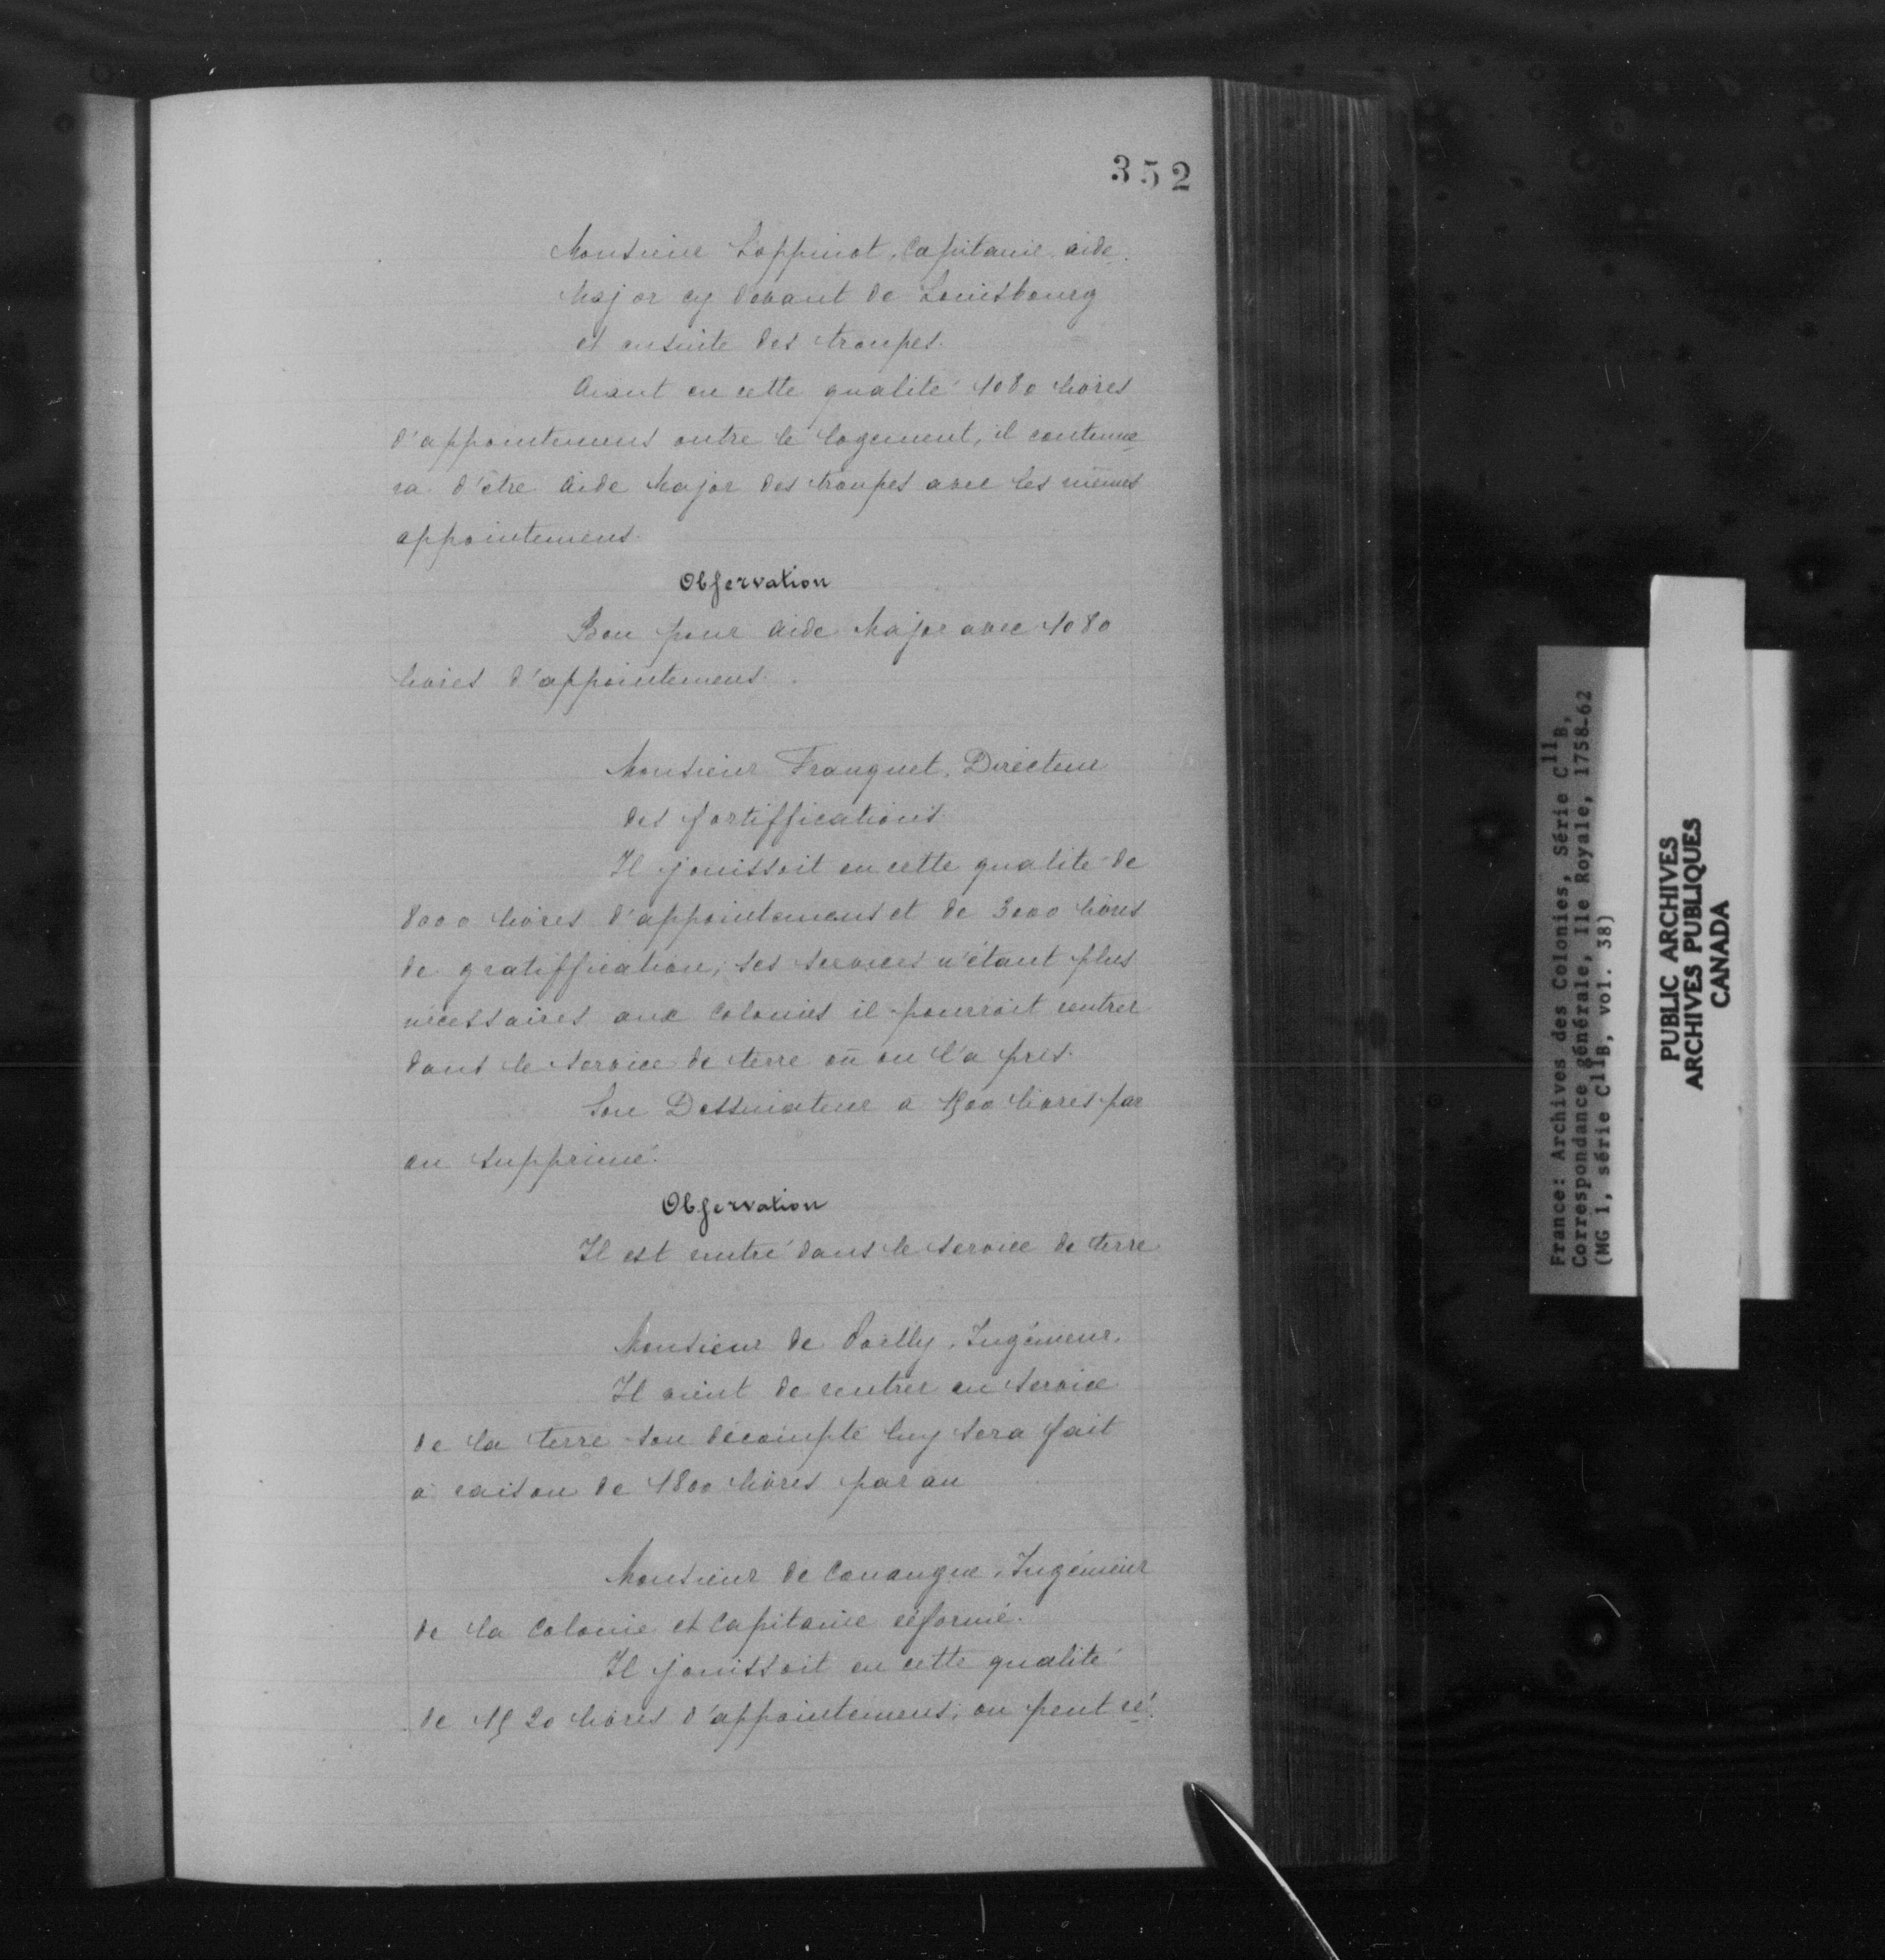 352
Monsieur Loppinot, Capitaine aide
Major cy devant de Louisbourg
et ensuite des troupes.
Aiant en cette qualité 1080 livres
d'appointemens outre le logement, il continue
ra d'être Aide Major des troupes avec les mêmes
appointemens.
Observation
Bon pour Aide Major avec 1080
livres d'appointemens.
Monsieur Franquet, Directeur
des fortiffications
Il jouissoit en cette qualité de
8000 livres d'appointemens et de 3000 livres
de gratiffication, ses services n'étant plus
nécessaires aux Colonies il pourroit rentrer
dans le service de terre où on l'a pris.
Son Dessinateur a 1500 livres par
an supprimé.
Observation
Il est rentré dans le service de terre
Monsieur de Poilly, Ingénieur.
Il vient de rentrer au service
de la terre son décompte luy sera fait
a raison de 1800 livres par an
Monsieur de Couangne, Ingénieur
de la Colonie et Capitaine réformé.
Il jouissoit en cette qualité
de 1520 livres d'appointemens, on peut ré
France: Archives des Colonies, Série C11B,
Correspondance générale, Ile Royale, 1758-62
(MG 1, série C11B, vol. 38)
PUBLIC ARCHIVES
ARCHIVES PUBLIQUES
CANADA